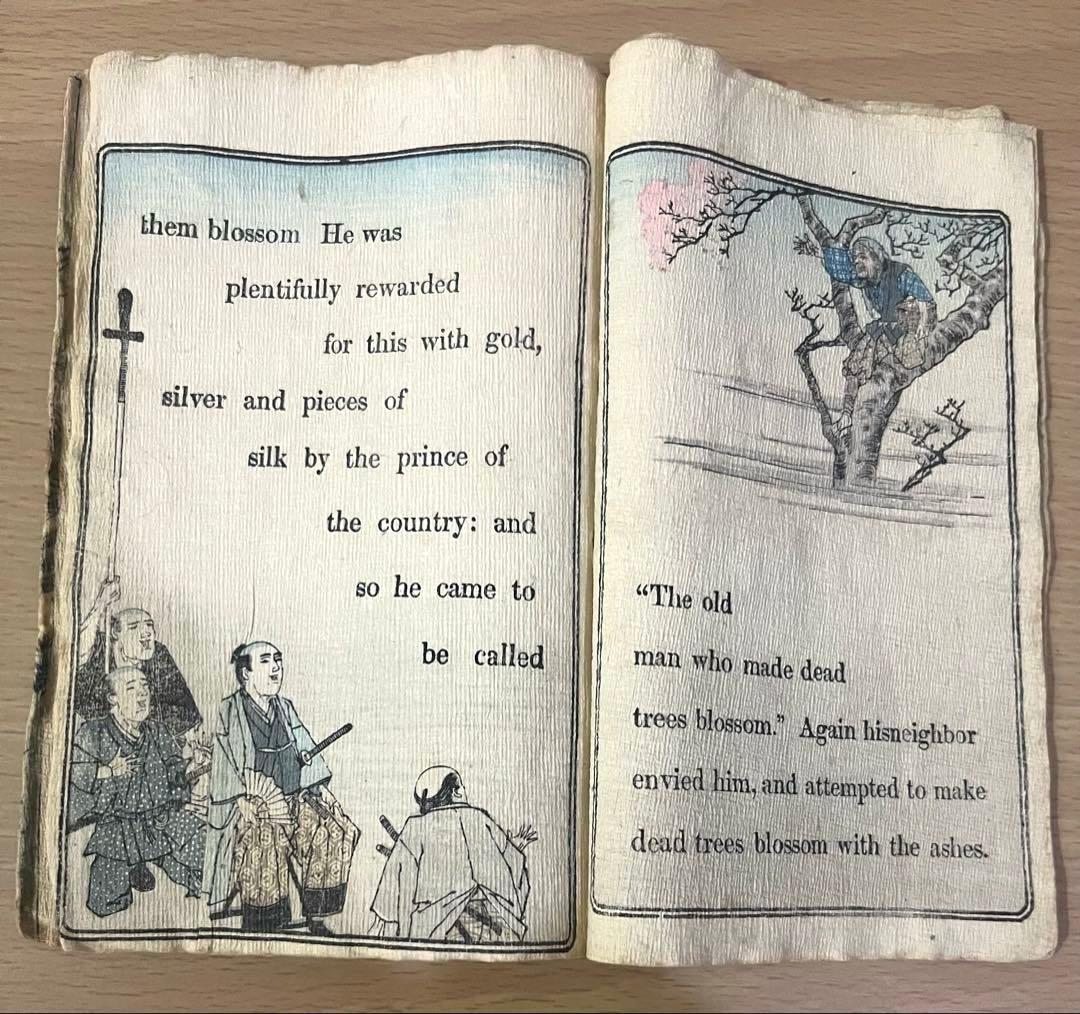 them blossom He was
plentifully rewarded
for this with gold,
silver and pieces of
silk by the prince of
the country: and
so he came to
be called
“The old
man who made dead
trees blossom.” Again hisneighbor
envied him, and attempted to make
dead trees blossom with the ashes.